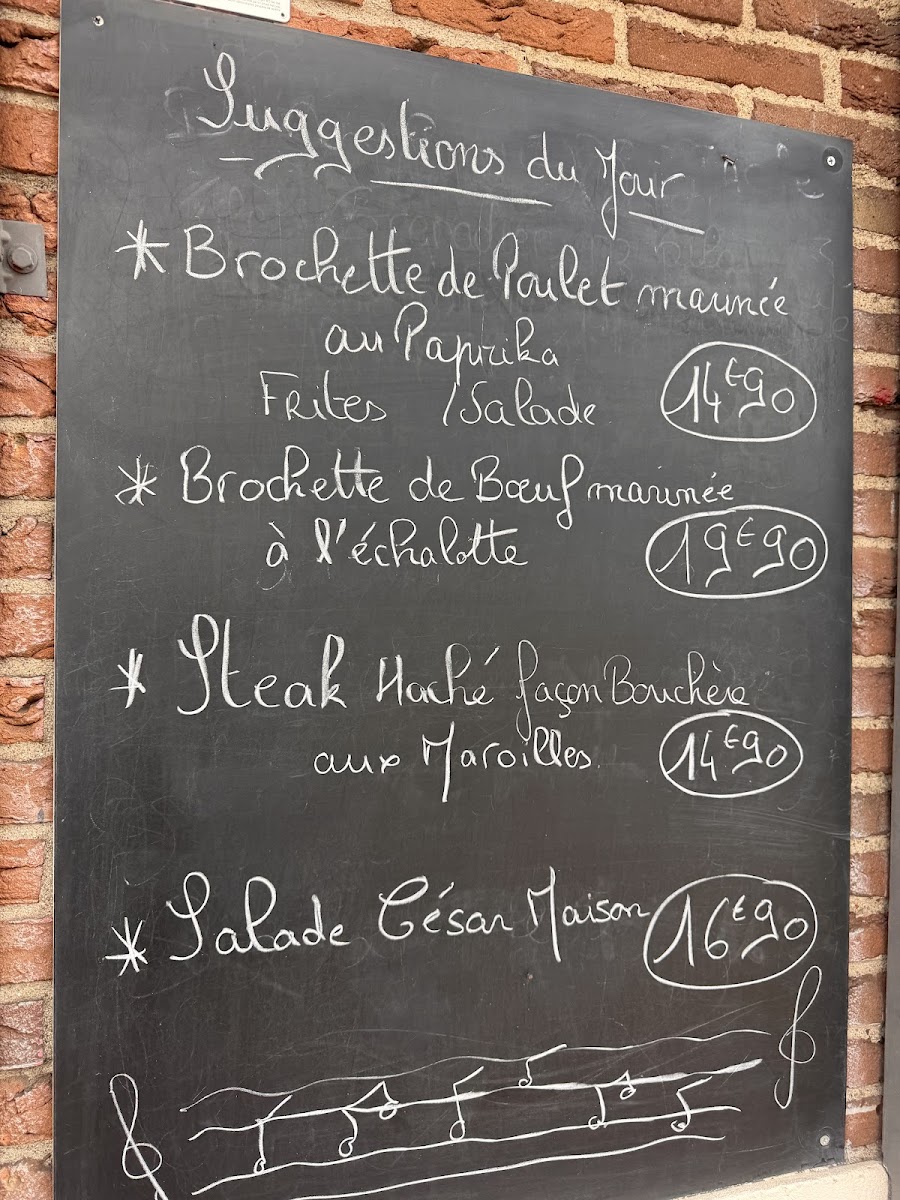 Suggestions du Jour
* Brochette de Poulet marinée
au Paprika
Frites / Salade 14€90
* Brochette de Bœuf marinée
à l'échalotte 19€90
* Steak Haché façon Bouchère
aux Maroilles 14€90
* Salade César Maison 16€90